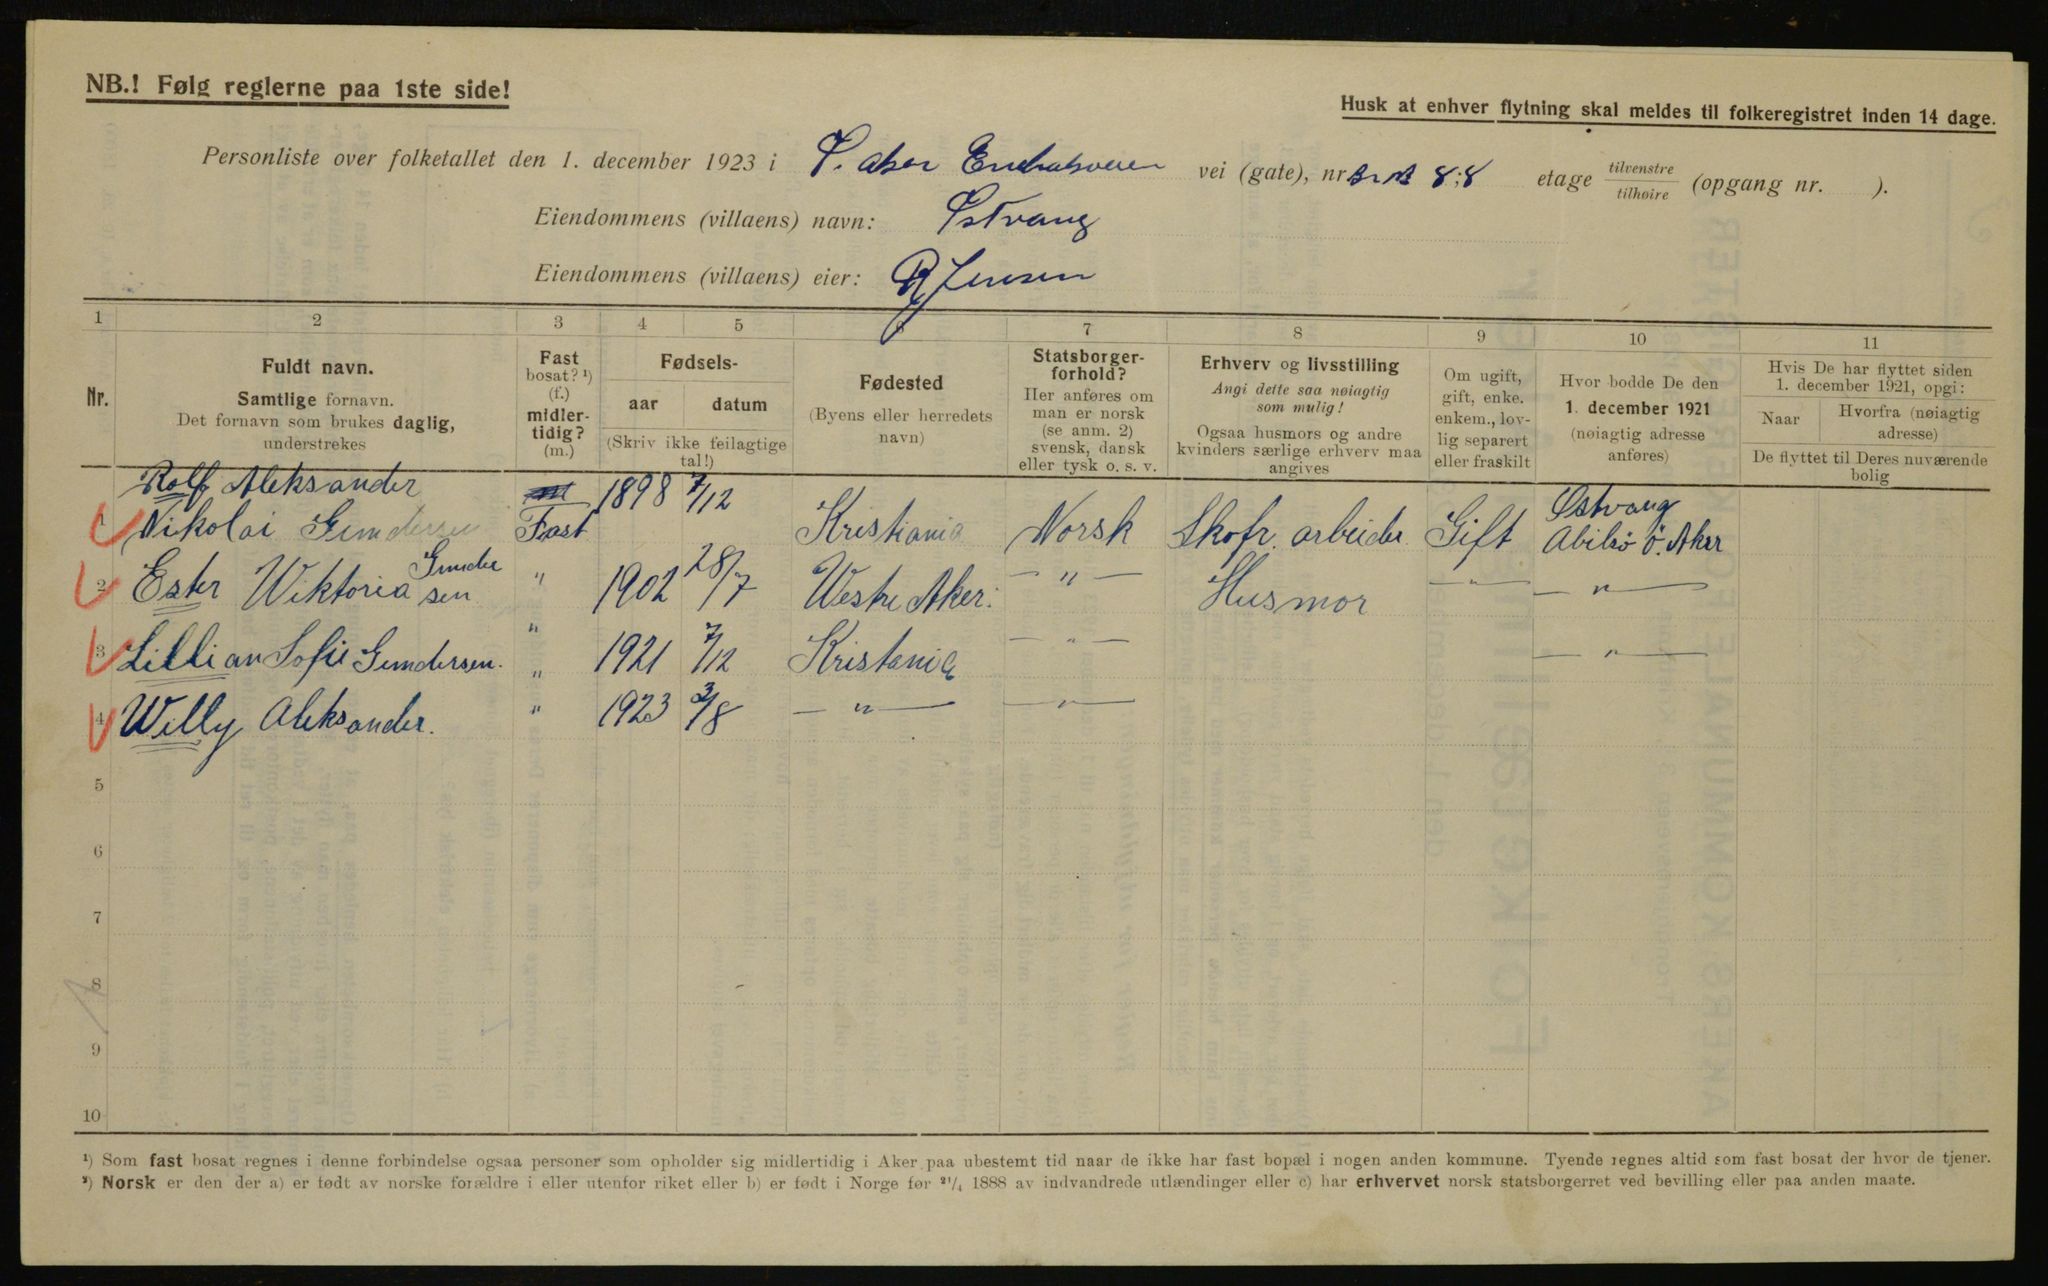 NB.! Følg reglerne paa 1ste side!
Husk at enhver flytning skal meldes til folkeregistret inden 14 dage.
Personliste over folketallet den 1. december 1923 i Ø. Aker Enebakveien vei (gate), nr. Br. N 8;8 etage tilvenstre tilhøire (opgang nr. ).
Eiendommens (villaens) navn: Østvang
Eiendommens (villaens) eier: R Jensen
1 2 3 4 5 6 7 8 9 10 11
Nr.
Fuldt navn.
Samtlige fornavn.
Det fornavn som brukes daglig,
understrekes
Fast
bosat? ¹)
(f.)
midler-
tidig?
(m.)
Fødsels-
aar datum
(Skriv ikke feilagtige
tal!)
Fødested
(Byens eller herredets
navn)
Statsborger-
forhold?
Her anføres om
man er norsk
(se anm. 2)
svensk, dansk
eller tysk o. s. v.
Erhverv og livsstilling
Angi dette saa nøiagtig
som mulig!
Ogsaa husmors og andre
kvinders særlige erhverv maa
angives
Om ugift,
gift, enke.
enkem., lov-
lig separert
eller fraskilt
Hvor bodde De den
1. december 1921
(nøiagtig adresse
anføres)
Hvis De har flyttet siden
1. december 1921, opgi:
Naar Hvorfra (nøiagtig
adresse)
De flyttet til Deres nuværende
bolig
Rolf Aleksander 1898 7/12 Østvang
1 Nikolai Gundersen Fast Kristiania Norsk Skofr. arbeider Gift Abilsö Ö. Aker
2 Ester Wiktoria Gundersen " 1902 28/7 Westre Aker. — " — Husmor — " — — " —
3 Lillian Sofie Gundersen. " " 1921 7/12 Kristania — " — — " —
4 Willy Aleksander. " 1923 3/8 — " — — " —
5
6
7
8
9
10
¹) Som fast bosat regnes i denne forbindelse ogsaa personer som opholder sig midlertidig i Aker paa ubestemt tid naar de ikke har fast bopæl i nogen anden kommune. Tyende regnes altid som fast bosat der hvor de tjener.
²) Norsk er den der a) er født av norske forældre i eller utenfor riket eller b) er født i Norge før ²¹/₄ 1888 av indvandrede utlændinger eller c) har erhvervet norsk statsborgerret ved bevilling eller paa anden maate.